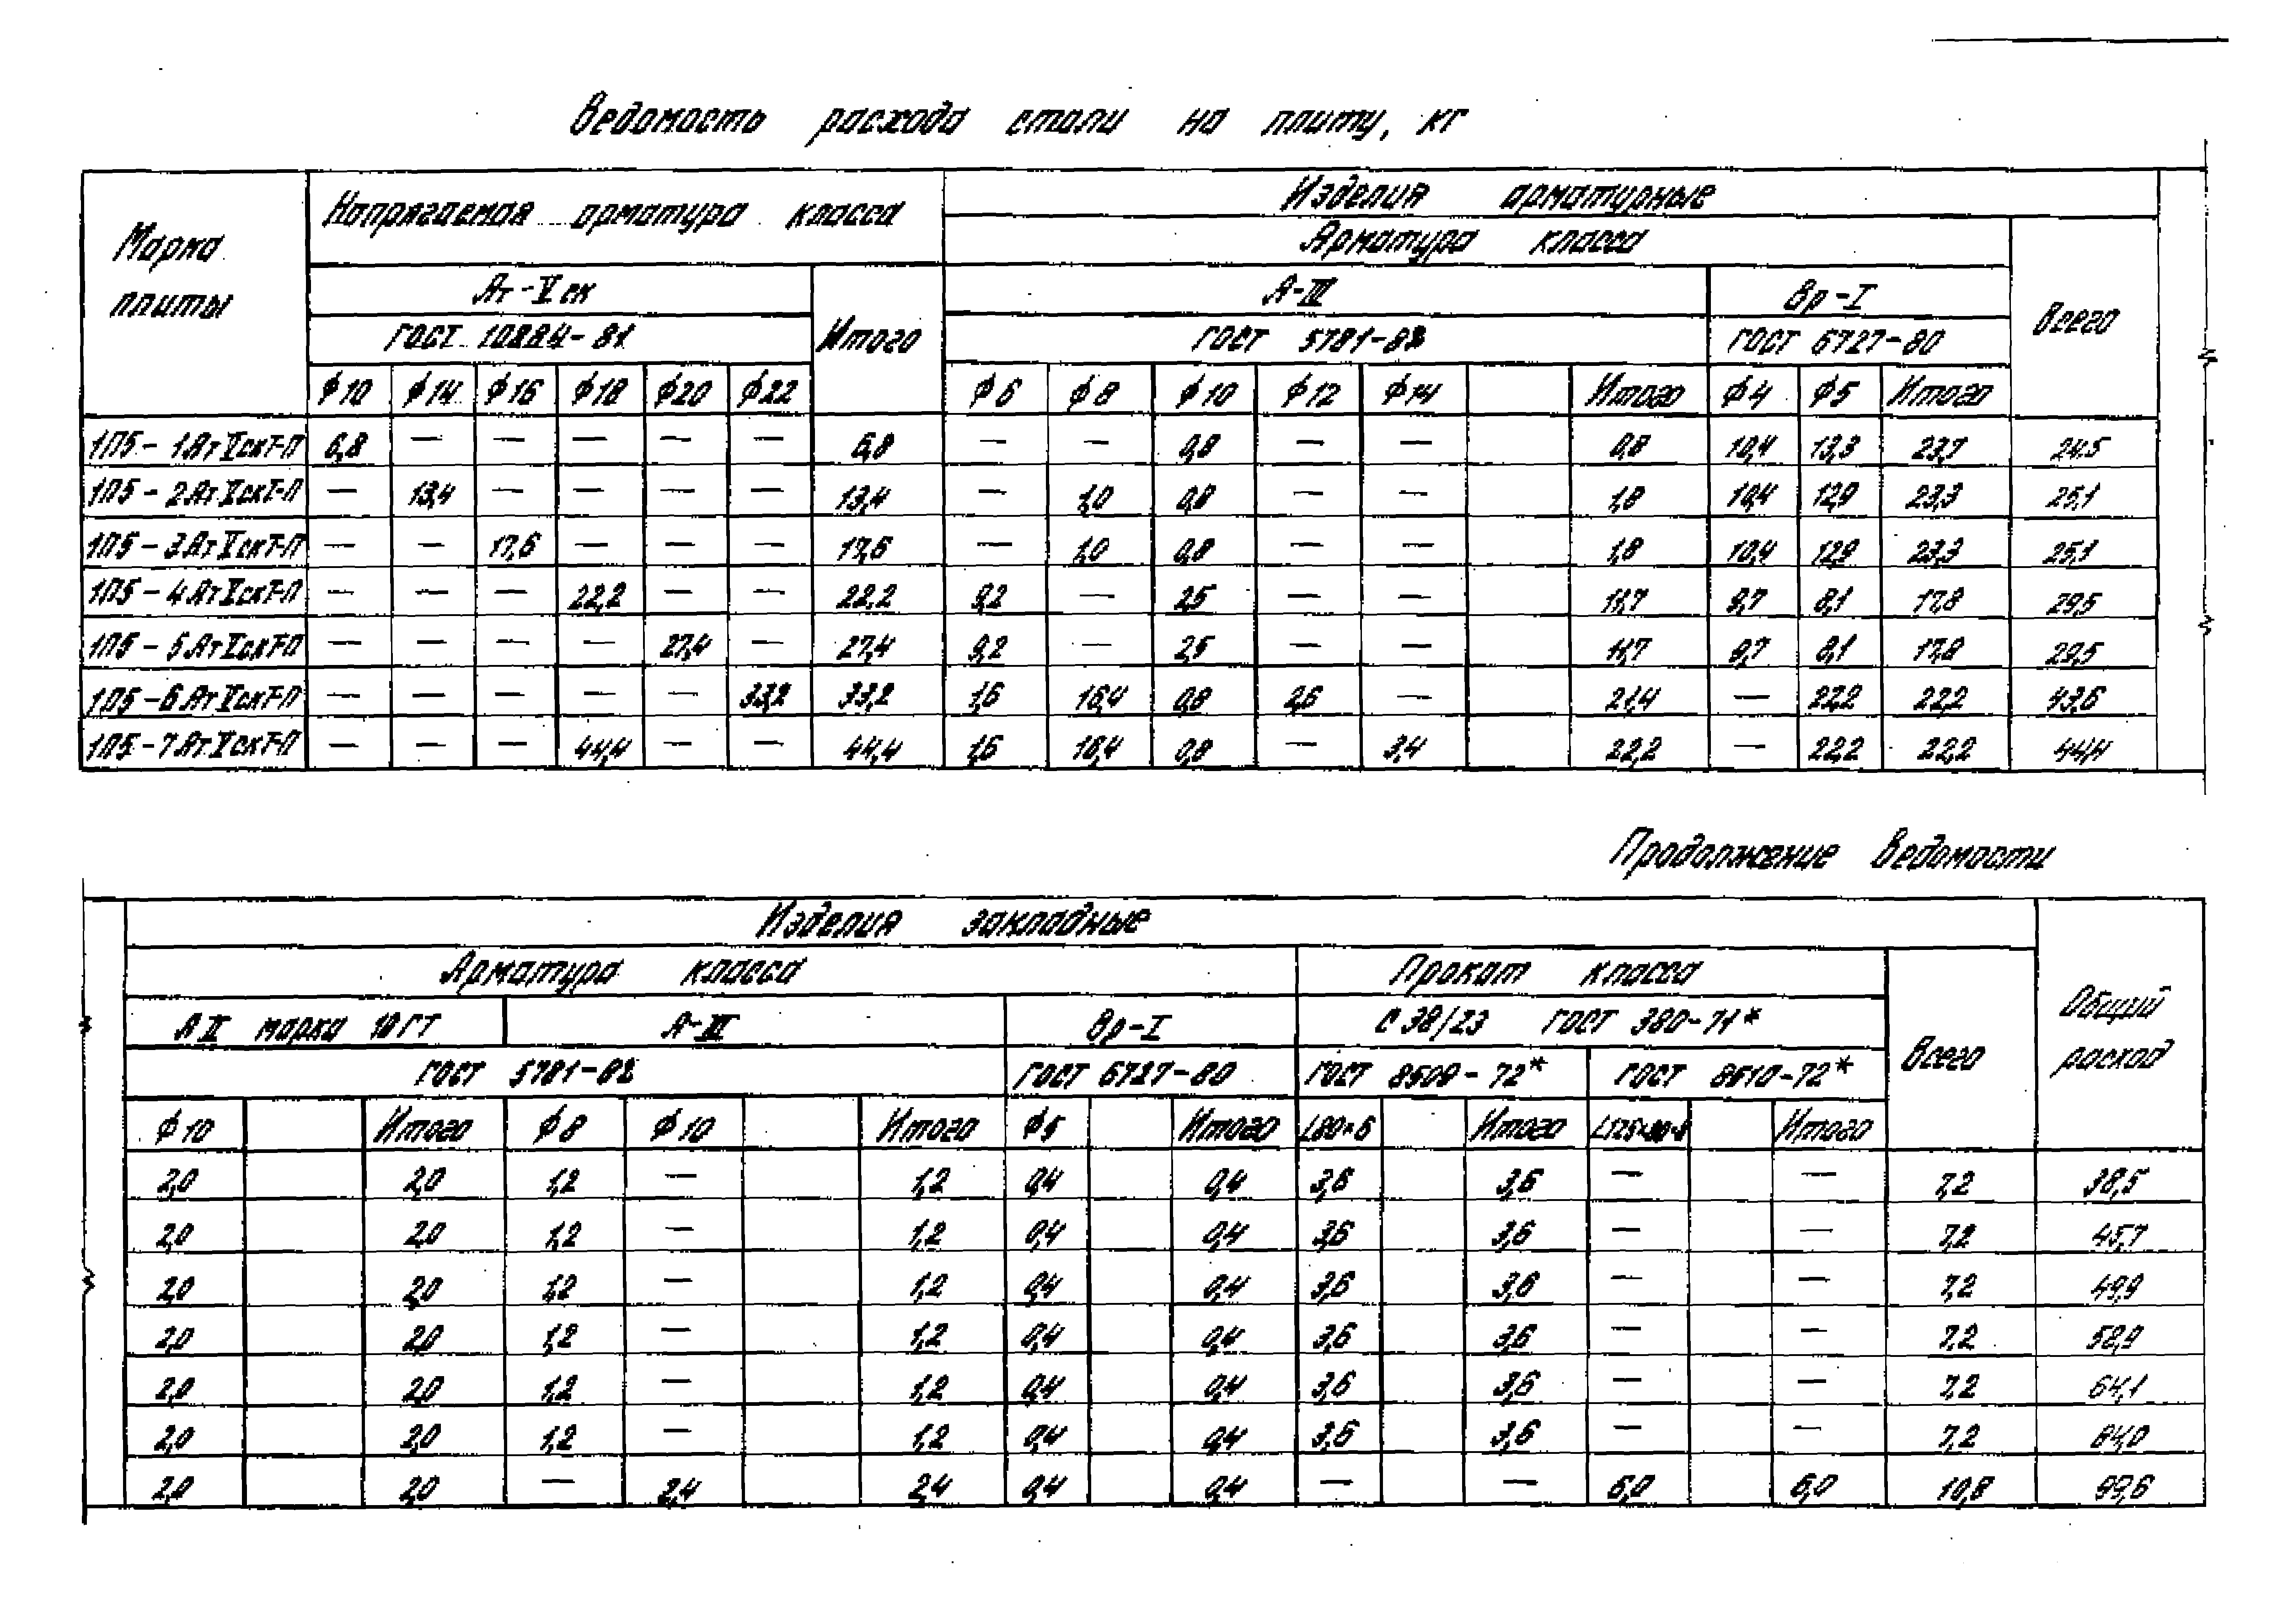 Ведомость расхода стали на плиту, кг
Марка плиты
Напрягаемая арматура класса
Изделия арматурные
Арматура класса
Ат-V ск
Итого
А-III
Вр-I
Всего
ГОСТ 10884-81
ГОСТ 5781-82
ГОСТ 6727-80
ф10 ф14 ф16 ф18 ф20 ф22 ф6 ф8 ф10 ф12 ф14 Итого ф4 ф5 Итого
1П5-1АтVскТ-П 6,8 — — — — — 6,8 — — 0,8 — — 0,8 10,4 13,3 23,7 24,5
1П5-2АтVскТ-П — 13,4 — — — — 13,4 — 1,0 0,8 — — 1,8 10,4 12,9 23,3 25,1
1П5-3АтVскТ-П — — 17,6 — — — 17,6 — 1,0 0,8 — — 1,8 10,4 12,9 23,3 25,1
1П5-4АтVскТ-П — — — 22,2 — — 22,2 9,2 — 2,5 — — 11,7 9,7 8,1 17,8 29,5
1П5-5АтVскТ-П — — — — 27,4 — 27,4 9,2 — 2,5 — — 11,7 9,7 8,1 17,8 29,5
1П5-6АтVскТ-П — — — — — 33,2 33,2 1,6 16,4 0,8 2,6 — 21,4 — 22,2 22,2 43,6
1П5-7АтVскТ-П — — — 44,4 — — 44,4 1,6 16,4 0,8 — 3,4 22,2 — 22,2 22,2 44,4
Продолжение ведомости
Изделия закладные
Общий расход
Арматура класса
Прокат класса
Всего
АII марка 10ГТ
А-III
Вр-I
С 38/23 ГОСТ 380-71*
ГОСТ 5781-82
ГОСТ 6727-80
ГОСТ 8509-72*
ГОСТ 8510-72*
ф10 Итого ф8 ф10 Итого ф5 Итого L80×6 Итого Итого
2,0 2,0 1,2 — 1,2 0,4 0,4 3,6 3,6 — — 7,2 38,5
2,0 2,0 1,2 — 1,2 0,4 0,4 3,6 3,6 — — 7,2 45,7
2,0 2,0 1,2 — 1,2 0,4 0,4 3,6 3,6 — — 7,2 49,9
2,0 2,0 1,2 — 1,2 0,4 0,4 3,6 3,6 — — 7,2 58,9
2,0 2,0 1,2 — 1,2 0,4 0,4 3,6 3,6 — — 7,2 64,1
2,0 2,0 1,2 — 1,2 0,4 0,4 3,6 3,6 — — 7,2 84,0
2,0 2,0 — 2,4 2,4 0,4 0,4 — — 6,0 6,0 10,8 99,6